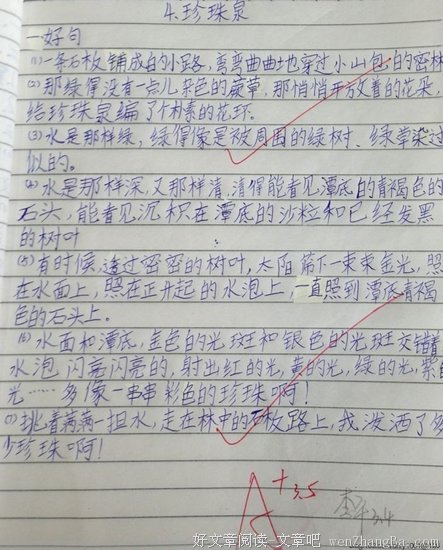 4.珍珠泉
一好句
(1)一条石板铺成的小路,弯弯曲曲地穿过小山包的密林
(2)那绿得没有一点儿杂色的蕨草,那悄悄开放着的花朵,
给珍珠泉编了个朴素的花环。
(3)水是那样绿,绿得像是被周围的绿树、绿草染过
似的。
(4)水是那样深,又那样清,清得能看见潭底的青褐色的
石头,能看见沉积在潭底的沙粒和已经发黑
的树叶
(5)有时候,透过密密的树叶,太阳筛下一束束金光,照
在水面上,照在正升起的水泡上,一直照到潭底青褐
色的石头上。
(6)水面和潭底,金色的光斑和银色的光斑交错着
水泡闪亮闪亮的,射出红的光,黄的光,绿的光,紫的
光……多像一串串彩色的珍珠啊!
(7)挑着满满一担水,走在林中的石板路上,我泼洒了多
少珍珠啊!
A+ 3.5
3.4
好文章阅读-文章吧 wenZhangBa.com